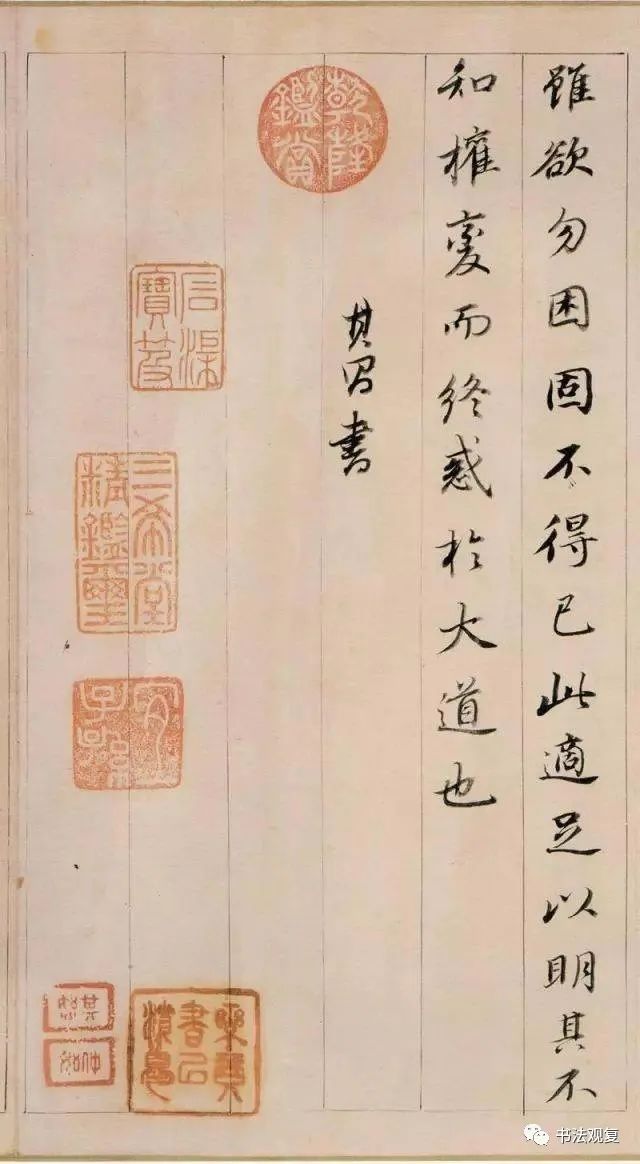 雖欲勿困固不得已此適足以明其不
知權變而終惑於大道也
其昌書
乾隆鑑賞
三希堂精鑑璽
宜子孫
书法观复